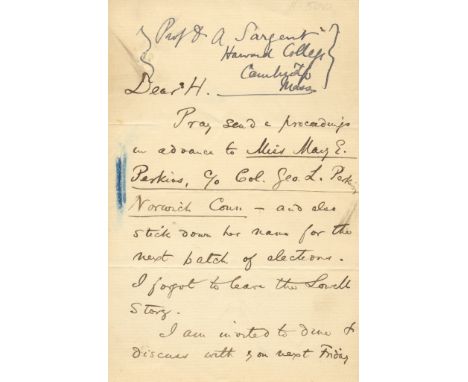 Prof D A Sargent
Harvard College
Cambridge
Mass
Dear H.
Pray send a proceedings
in advance to Miss May E.
Perkins, c/o Col. Geo. L. Perkins
Norwich Conn – and also
stick down her name for the
next batch of elections.
I forgot to leave the
Story.
I am invited to dine &
discuss with on next Friday